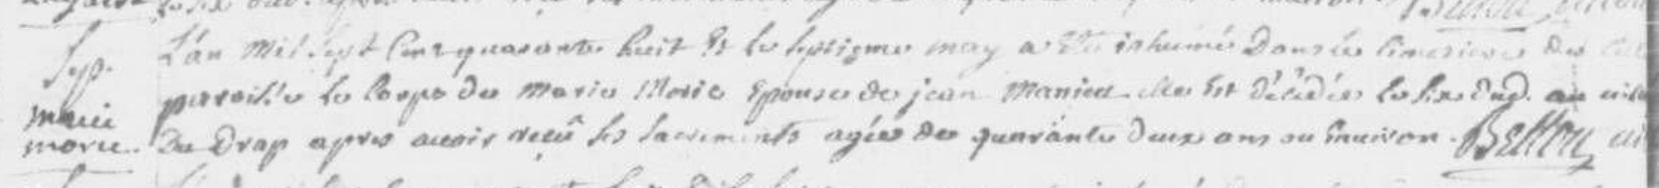 Sep.
marie
morie.
L'an mil sept cent quarante huit et le septieme may a ete inhumé dans le cimetiere de cette
paroisse le corps de marie Morie Epouse de jean Manieu elle est décédée le six dud. au
Du Drap apres avoir reçu les sacrements agée de quarante deux ans ou environ. Bellon